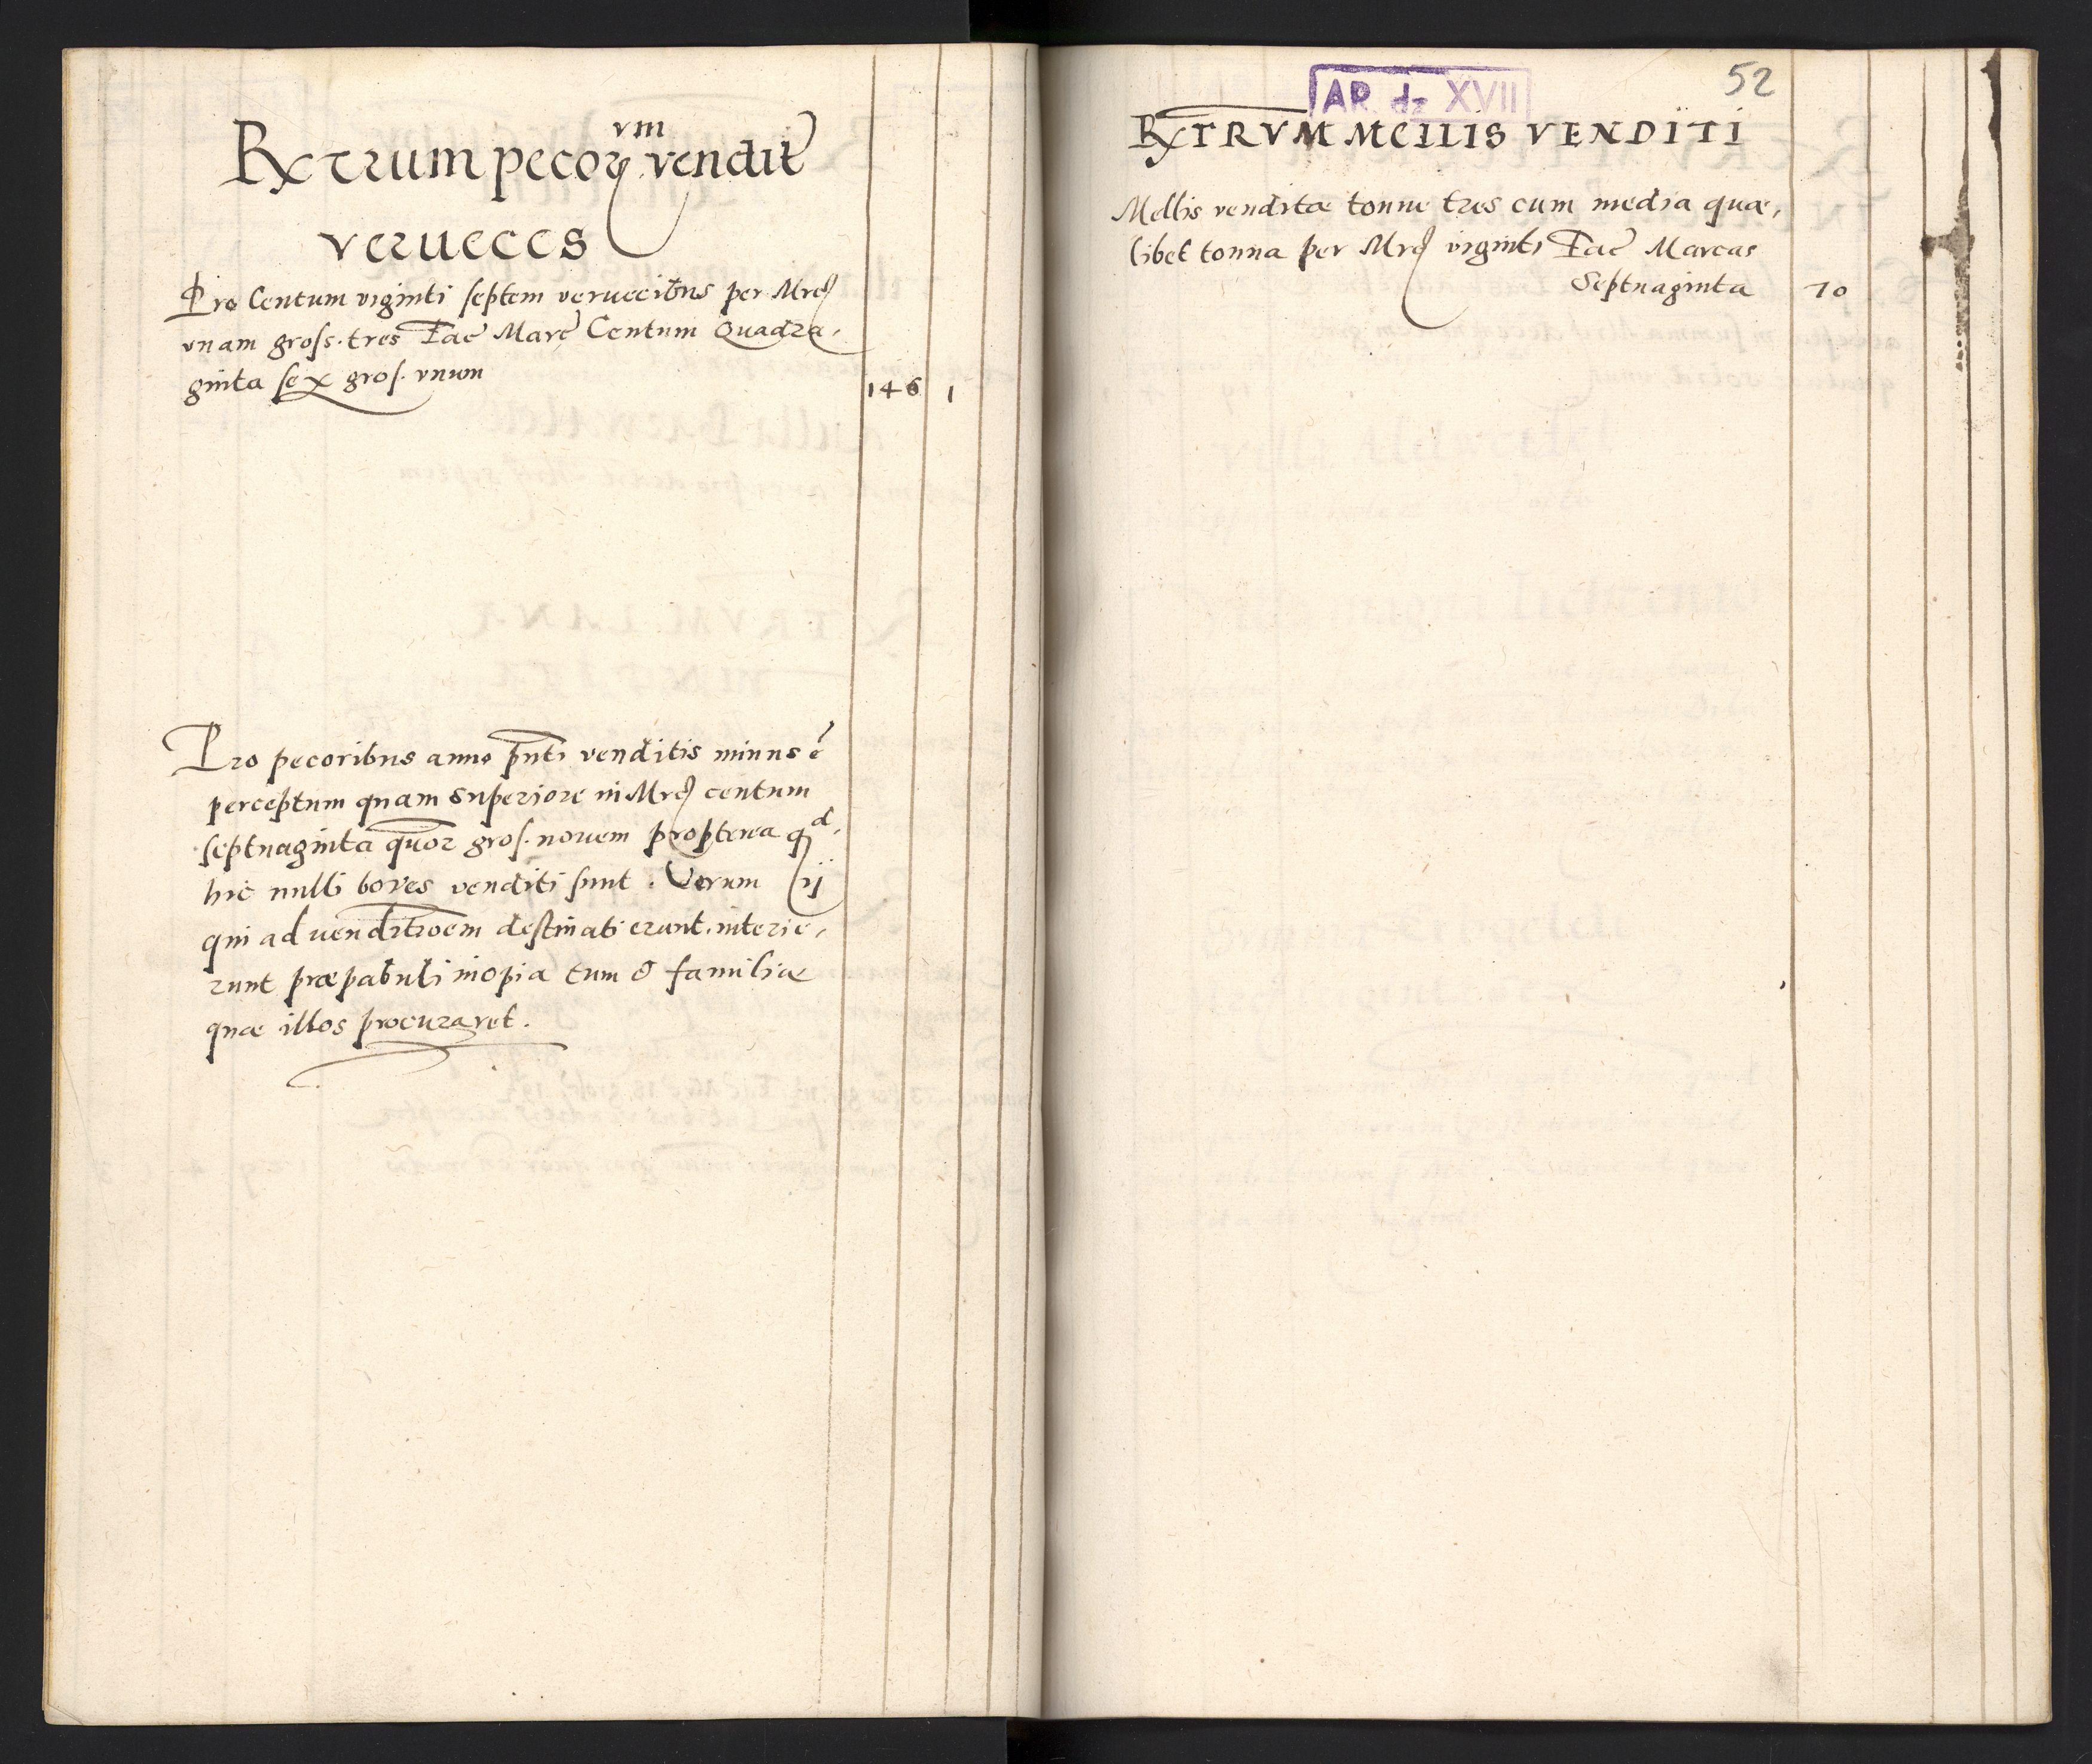 Rxtrum pecorum vendit
verueces
Pro Centum viginti septem veruecibus per Mrc
vnam gross. tres Fac Marc Centum Quadra,
ginta sex gros. vnum 146 1
Pro pecoribus anno pnti venditis minus é
perceptum quam superiore in Mrc centum
septuaginta quor gros. novem propterea qd,
hic nulli boves venditi sunt. Verum ij
qui ad venditioem destinati erant. interie,
runt præ pabuli inopia tum & familiæ
quæ illos procuraret.
AP. dz XVII
52
RxTRVM MELLIS VENDITI
Mellis venditæ tonne tres cum media quæ,
libet tonna per Mrc viginti Fac Marcas
Septuaginta 70